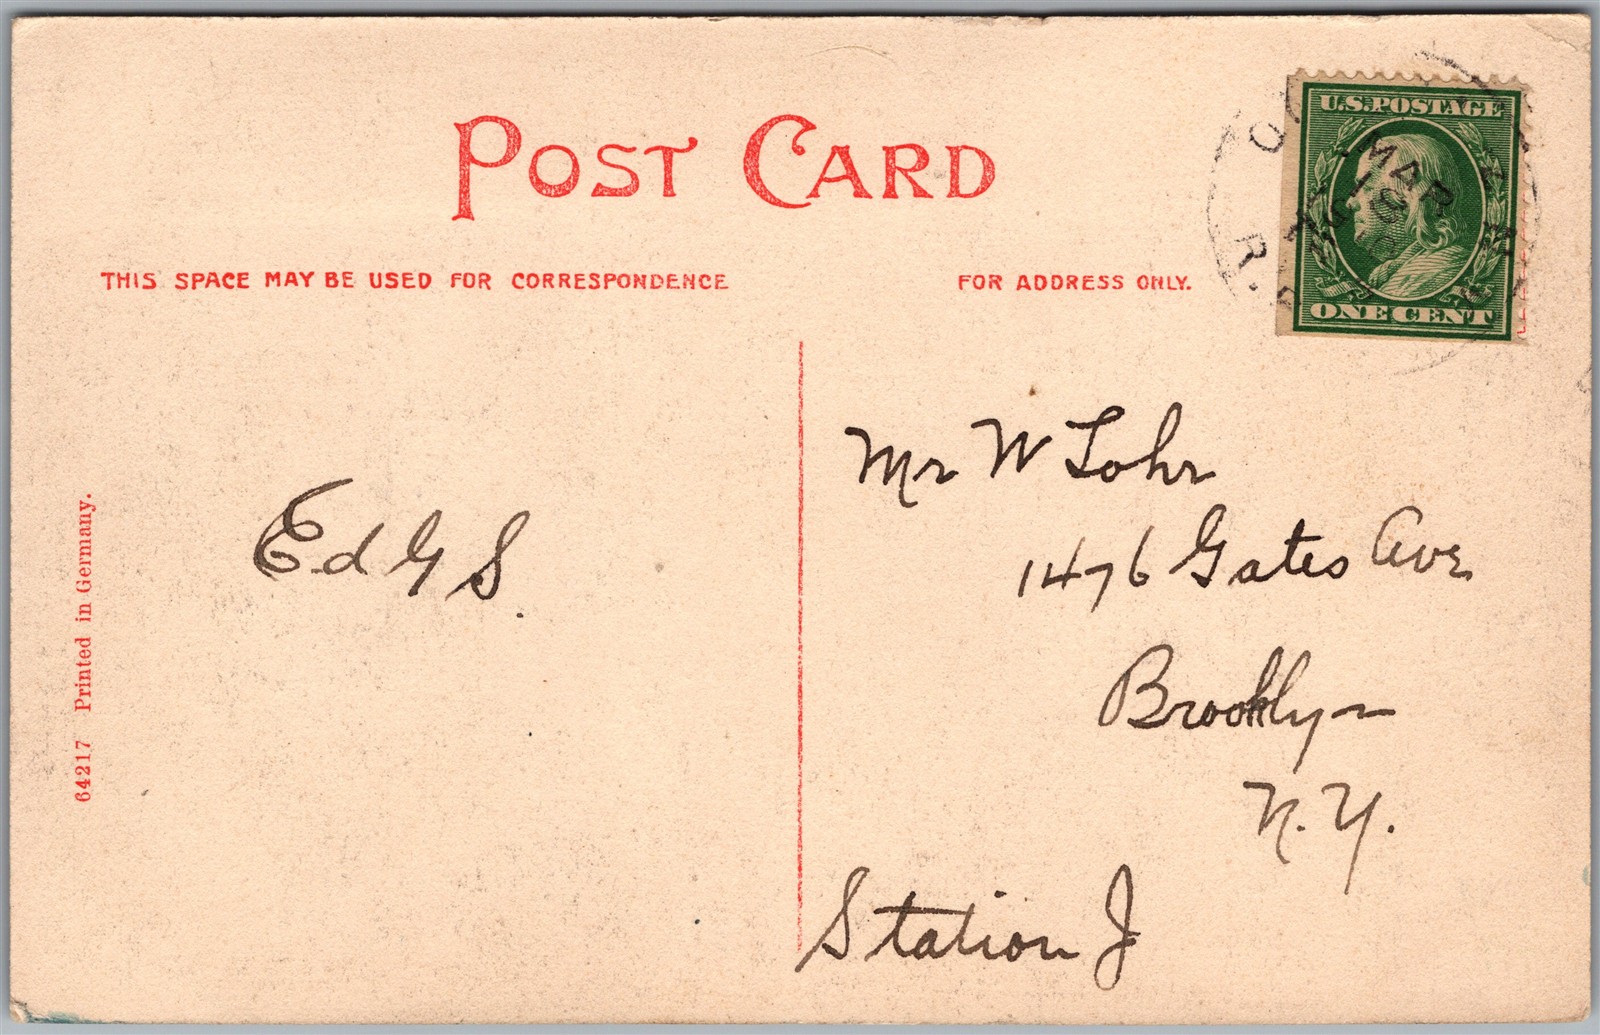 POST CARD
THIS SPACE MAY BE USED FOR CORRESPONDENCE
FOR ADDRESS ONLY.
U.S. POSTAGE
MAR
ONE CENT
R.P.
Mr W Lohr
1476 Gates Ave
Brooklyn
N.Y.
Station J
Ed G S.
64217 Printed in Germany.